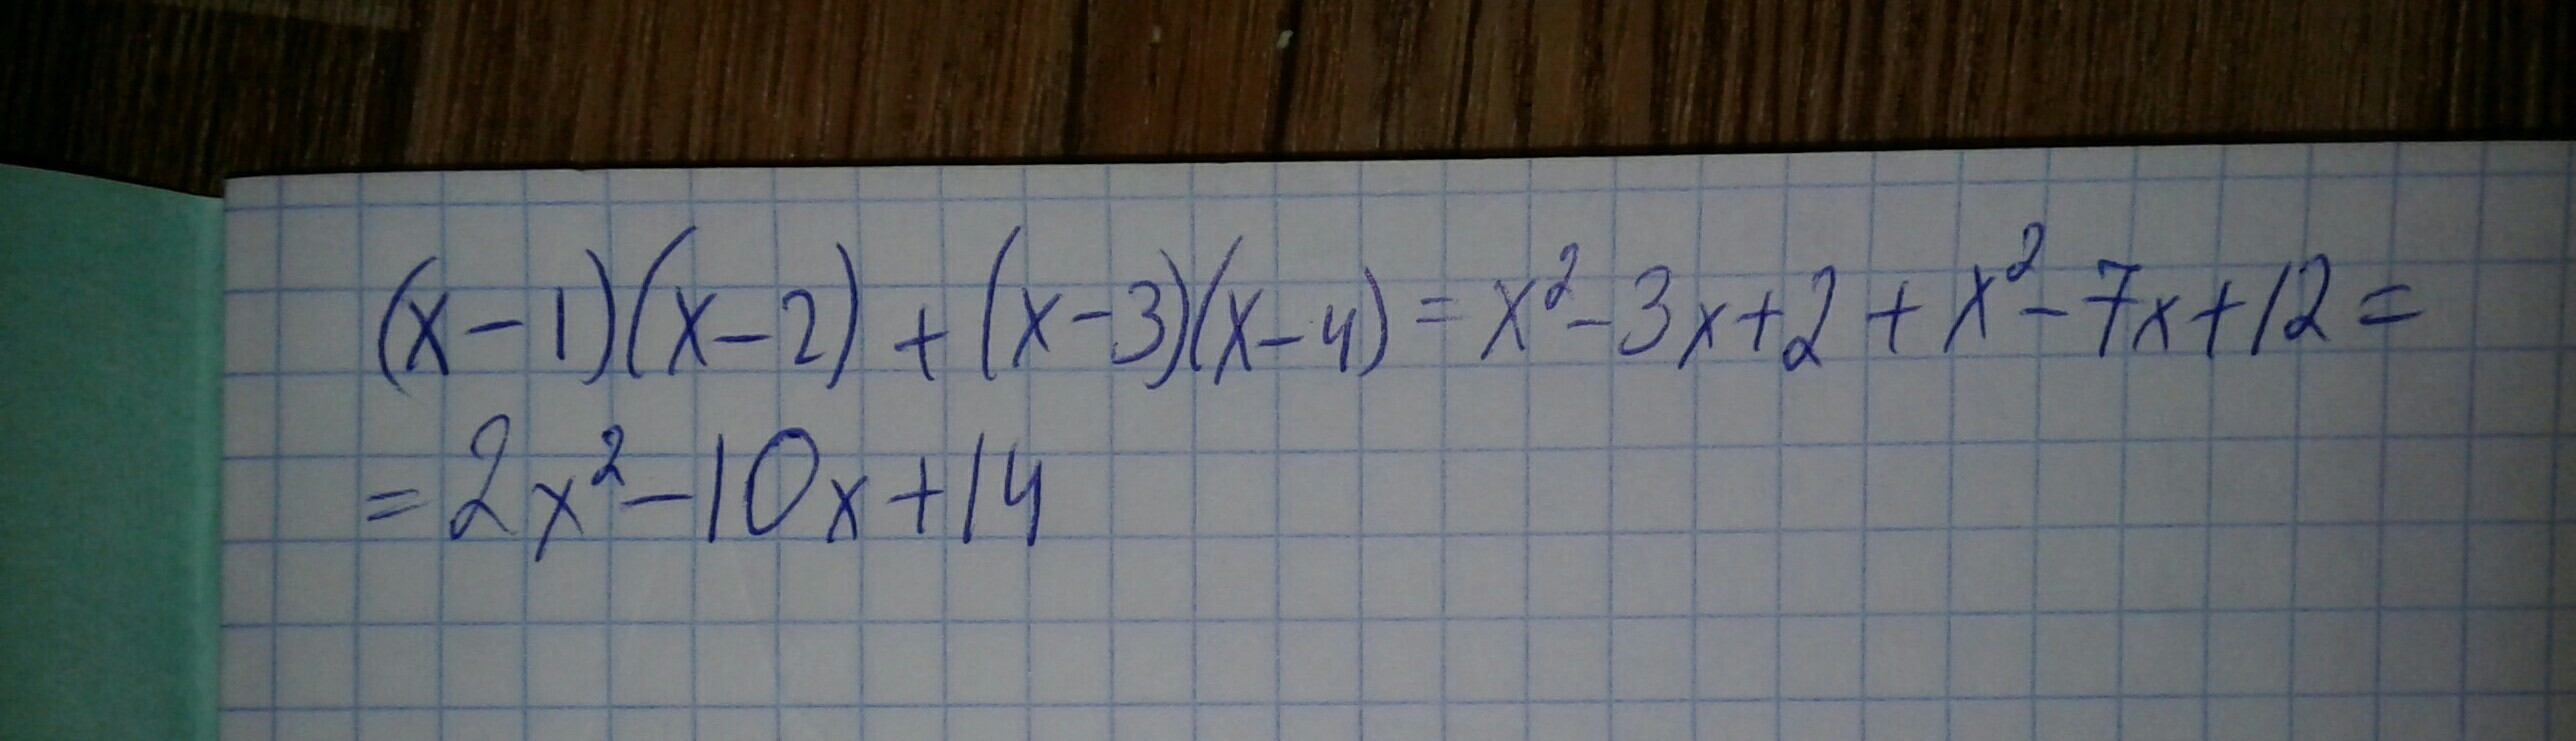 (x-1)(x-2)+(x-3)(x-4)=x²-3x+2+x²-7x+12=
=2x²-10x+14